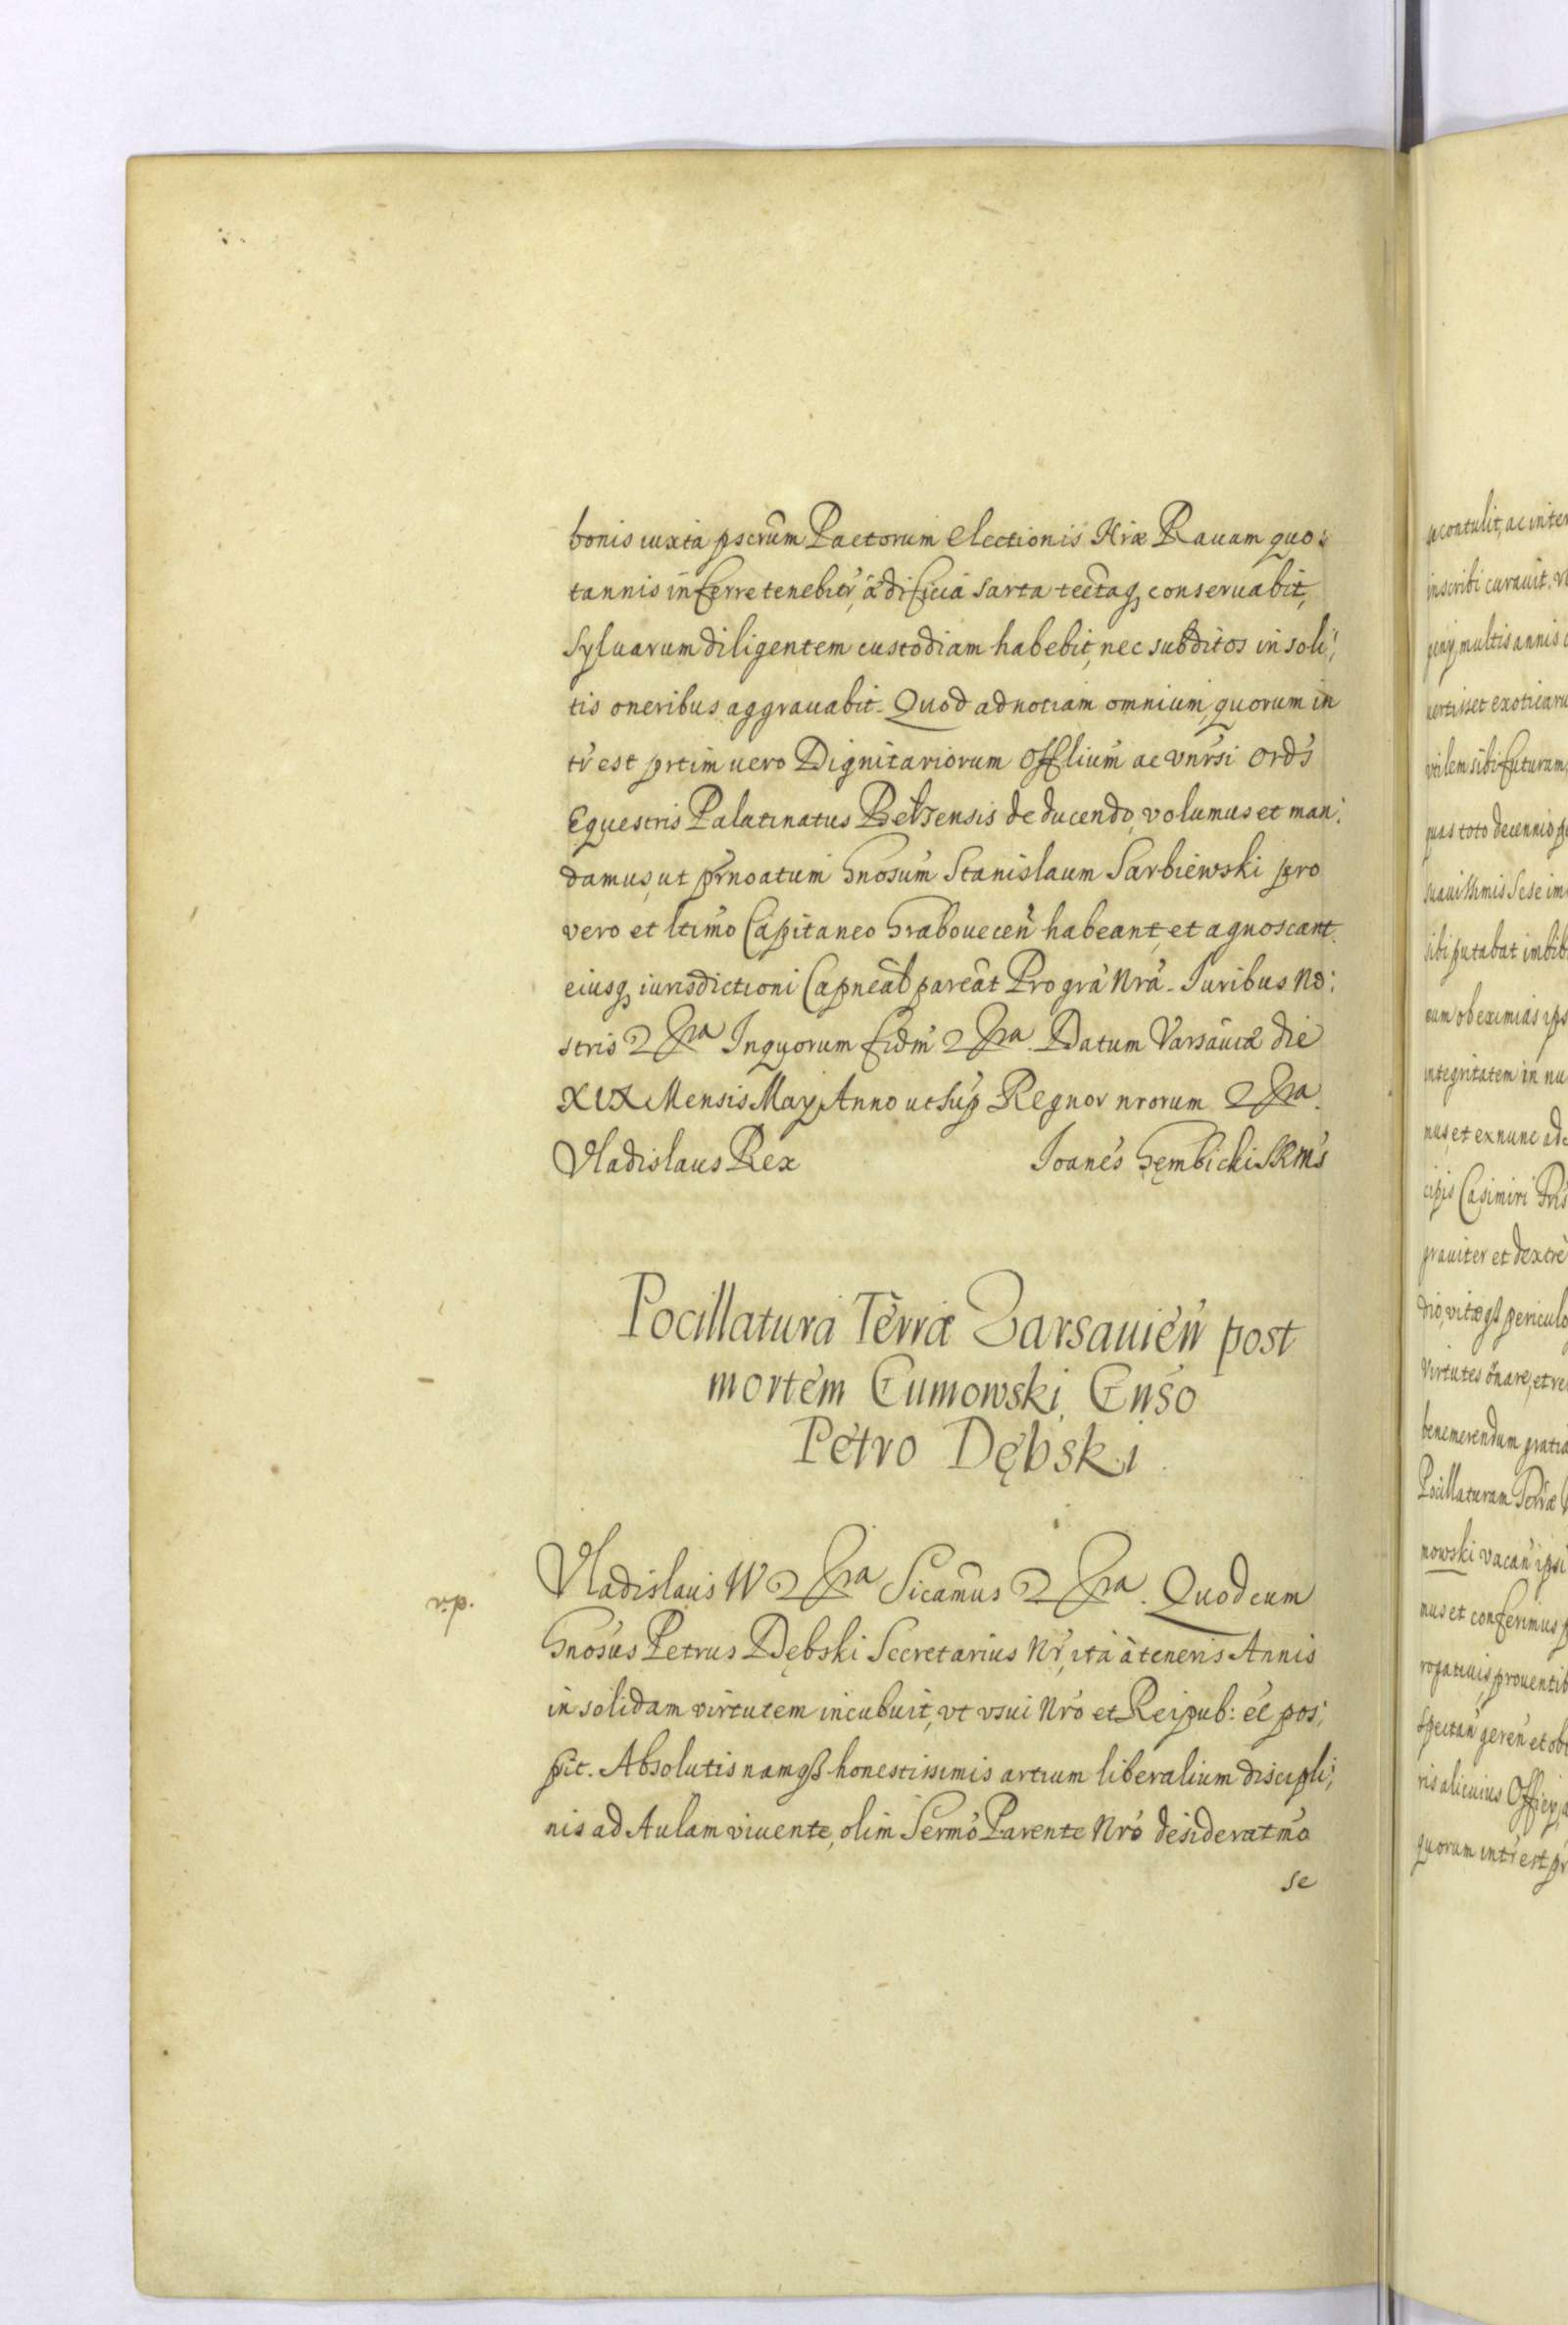 bonis iuxta pscrũm Pactorum electionis Nræ Rauam quo:
tannis inferre tenebitr, ædificia sarta tectaq; conseruabit,
Syluarum diligentem custodiam habebit, nec subditos insoli:
tis oneribus aggrauabit. Quod ad notiam omnium, quorum in
tr̃est prtim uero Dignitariorum Offlium ac vnr̃si Ordĩs
Equestris Palatinatus Belzensis deducendo, volumus et man:
damus, ut prñoatum Gnosum Stanislaum Sarbiewski pro
vero et ltimo Capitaneo Graboueceñ habeant, et agnoscant
eiusq; iurisdictioni Capneãl pareãt Pro grã Nrã. Iuribus No:
stris &ra In quorum fidm &ra. Datum Varsauiæ die
XIX Mensis May Anno ut sup Regnor nrorum &ra.
Vladislaus Rex Ioanẽs Gembicki SRMs
Pocillatura Terræ Varsauieñ post
mortem Gumowski, Gnso
Petro Dębski
v.p.
Vladislaus IV &ra Sicamus &ra. Quod cum
Gnosus Petrus Dębski Secretarius Nr, ita à teneris Annis
in solidam virtutem incubuit, vt vsui Nro et Reipub: eẽ pos:
sit. Absolutis namq; honestissimis artium liberalium discipli:
nis ad Aulam viuente, olim Sermo Parente Nro desideratmo
se
se contulit, ac inter
inscribi curauit. V
multis annis
vertisset exoticaru
vtilem sibi futuram,
quas toto decennio
suauissimis sese im
sibi putabat imbib
eum ob eximias ips
integritatem in nu
mus, et ex nunc ad
cipis Casimiri
grauiter et dextrè
dio, vitæq; periculo
Virtutes ornare, et re
benemerendum gratia
Pocillaturam Terræ
mowski vacañ ipsi
mus et conferimus
rogatiuis, prouentib
spectañ gereñ et ob
ris alicuius Officy,
quorum intr̃est pr